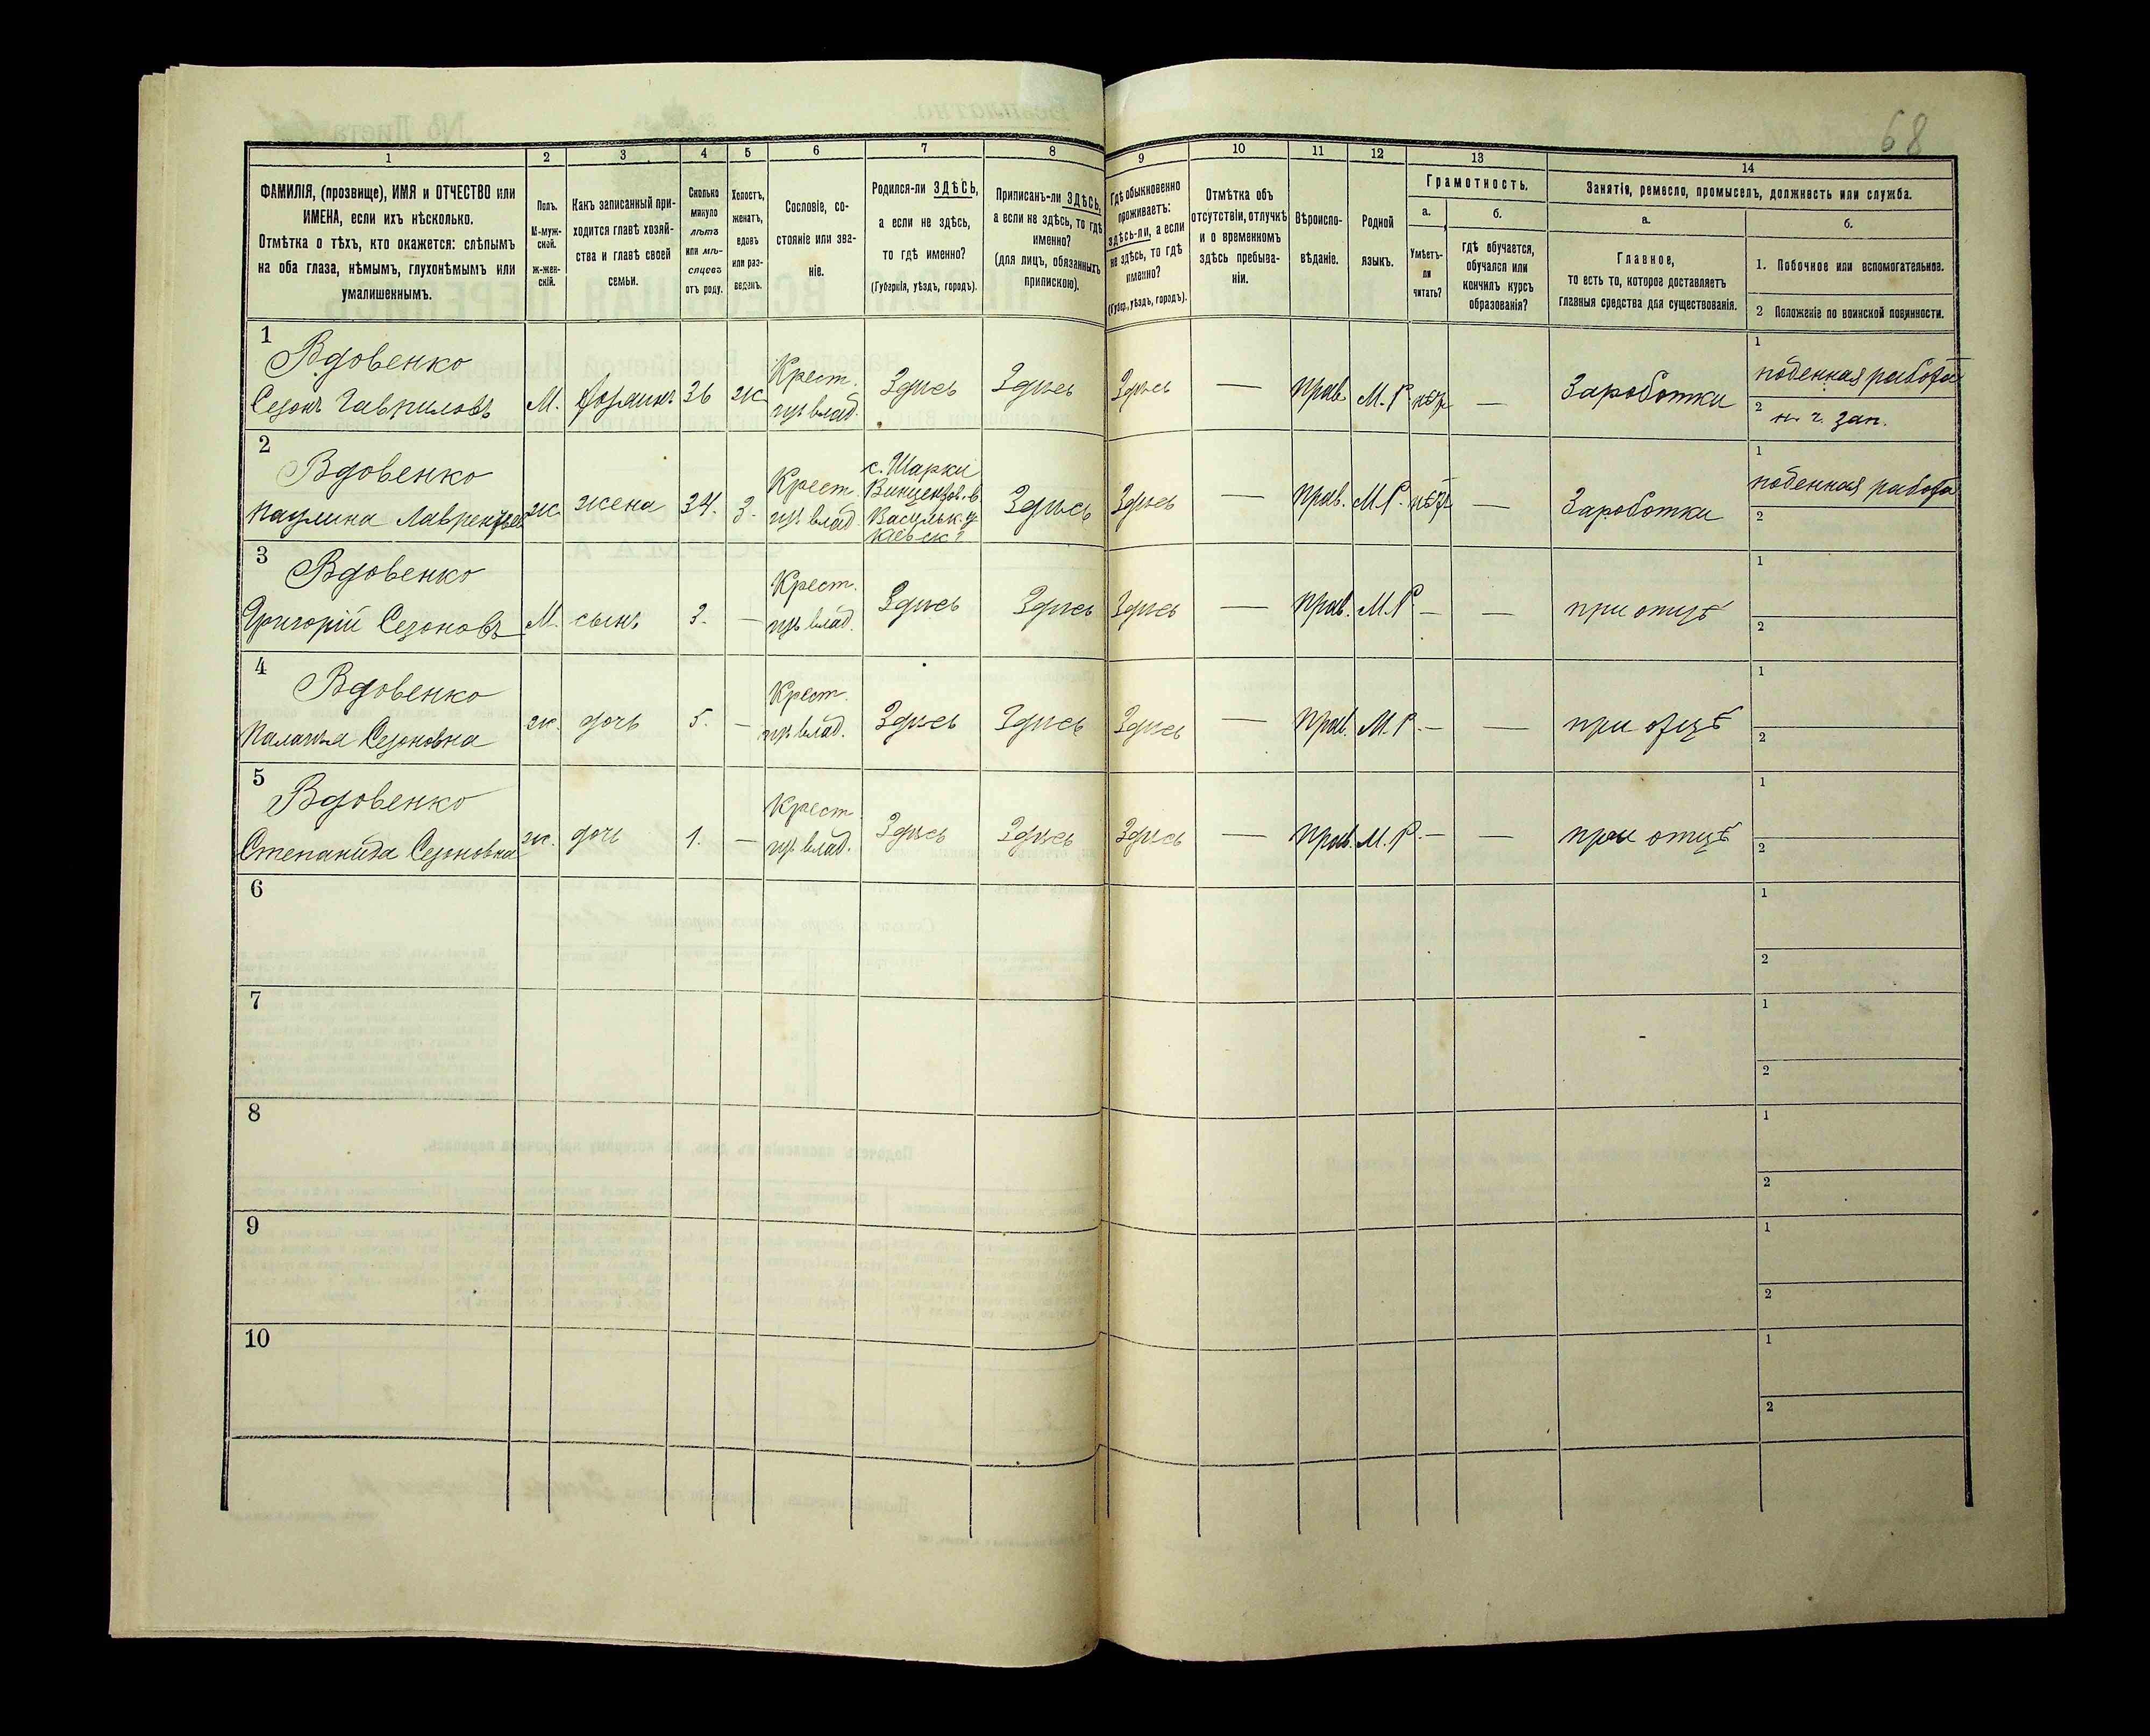 68
1 2 3 4 5 6 7 8 9 10 11 12 13 14
ФАМИЛІЯ, (прозвище), ИМЯ и ОТЧЕСТВО или
ИМЕНА, если ихъ нѣсколько.
Отмѣтка о тѣхъ, кто окажется: слѣпымъ
на оба глаза, нѣмымъ, глухонѣмымъ или
умалишеннымъ.
Полъ.
М-муж-
ской.
ж-жен-
скій.
Какъ записанный при-
ходится главѣ хозяй-
ства и главѣ своей
семьи.
Сколько
минуло
лѣтъ
или мѣ-
сяцевъ
отъ роду.
Холостъ,
женатъ,
вдовъ
или раз-
веденъ.
Сословіе, со-
стояніе или зва-
ніе.
Родился-ли ЗДѢСЬ,
а если не здѣсь,
то гдѣ именно?
(Губернія, уѣздъ, городъ).
Приписанъ-ли ЗДѢСЬ,
а если не здѣсь, то гдѣ
именно?
(для лицъ, обязанныхъ
припискою).
Гдѣ обыкновенно
проживаетъ:
здѣсь-ли, а если
не здѣсь, то гдѣ
именно?
(Губер., уѣздъ, городъ).
Отмѣтка объ
отсутствіи, отлучкѣ
и о временномъ
здѣсь пребыва-
ніи.
Вѣроиспо-
вѣданіе.
Родной
языкъ.
Грамотность.
а.
Умѣетъ-
ли
читать?
б.
гдѣ обучается,
обучался или
кончилъ курсъ
образованія?
Занятіе, ремесло, промыселъ, должность или служба.
а.
Главное,
то есть то, которое доставляетъ
главныя средства для существованія.
б.
1. Побочное или вспомогательное.
2 Положеніе по воинской повинности.
1
Вдовенко
Созонъ Гавриловъ М. хозяинъ 36 ж. Крест.
из влад. Здись Здись Здись — прав. М. Р. нѣтъ — Заработки
1 поденная работа
2 н. ч. зап.
2
Вдовенко
Паулина Лаврентьев ж. жена 34. з. Крест.
из влад с. Шарки
Васильк. у.
Кіевск. г. Здись Здись — Прав. М. Р. нѣтъ — Заработки
1 поденная работа
2
3
Вдовенко
Григорій Созоновъ М. сынъ 3. — Крест.
из влад. Здись Здись Здись — прав. М. Р. — — при отцѣ
1
2
4
Вдовенко
Палажка Созоновна ж. дочь 5. — Крест.
из влад. Здись Здись Здись — прав. М. Р. — — при отцѣ
1
2
5
Вдовенко
Степанида Созоновна ж. дочь 1. — Крест.
из влад. Здись Здись Здись — прав. М. Р. — — при отцѣ
1
2
6
1
2
7
1
2
8
1
2
9
1
2
10
1
2